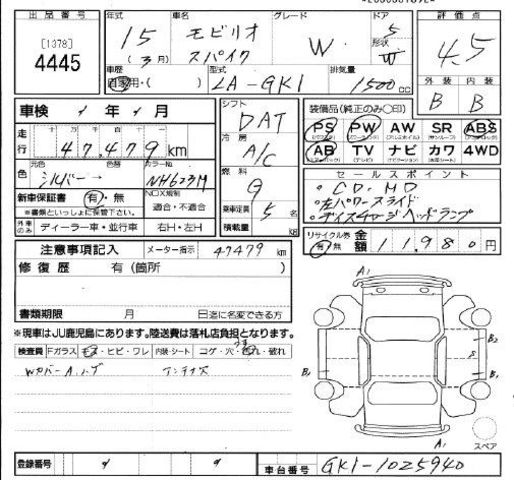 出品番号 年式 車名 グレード ドア 評価点
[1378]
4445
15 モビリオ スパイク W 5 4.5
(3月) 形状
車歴 型式 排気量 外装 内装
自家用・( ) LA-GK1 1500 CC B B
車検 年 月 シフト DAT
装備品(純正のみ○印)
PS PW AW SR ABS
AB TV ナビ カワ 4WD
走行 十 万 千 百 十 一
47,479 km
冷房 A/C
元色 色替 カラーNo.
色 シルバー → NH623M
燃料 G
新車保証書 有・無
※書類といっしょに保管下さい。
NOX規制
適合・不適合
乗車定員 5 名
積載量 kg
外車のみ ディーラー車・並行車 右H・左H
セールスポイント
・CD.MD
・左パワースライド
・ディスチャージヘッドランプ
リサイクル券 有 無 金額 11,980円
注意事項記入 メーター指示 47479 km
修復歴 有(箇所 )
書類期限 月 日迄に名変できる方
※現車はJU鹿児島にあります。陸送費は落札店負担となります。
検査員 Fガラス キズ・ヒビ・ワレ 内装・シート コゲ・穴・汚れ・破れ
A1
B2
S
B1 B1
A1
スペア
登録番号
車台番号 GK1-1025940